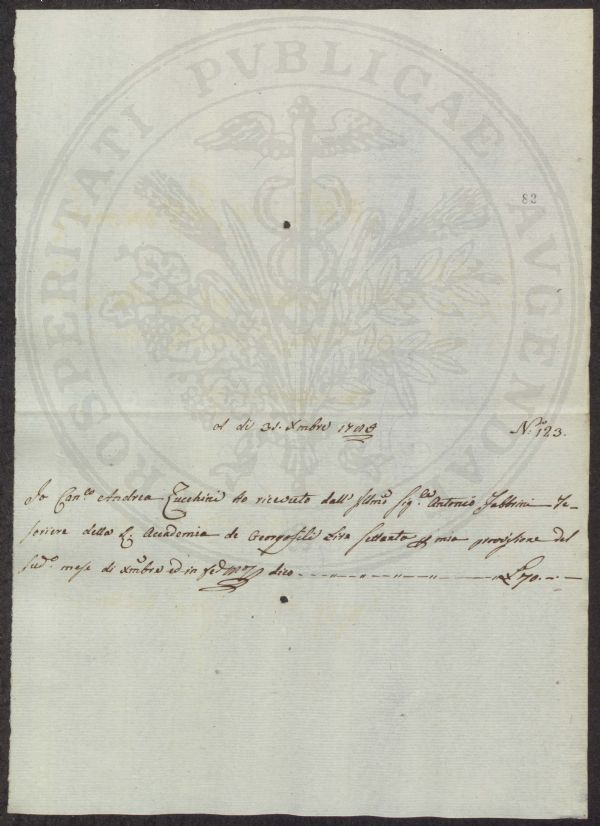 PROSPERITATI PVBLICAE AVGENDAE
82
A dì 31. Xmbre 1788
N.º 123.
Io Can.co Andrea Zucchini ho ricevuto dall' Illmo Sig.re Antonio Fabbrini Te-
soriere della R. Accademia de Georgofili Lire settanta p mia provisione del
sud.º mese di Xmbre ed in fede dico £ 70.